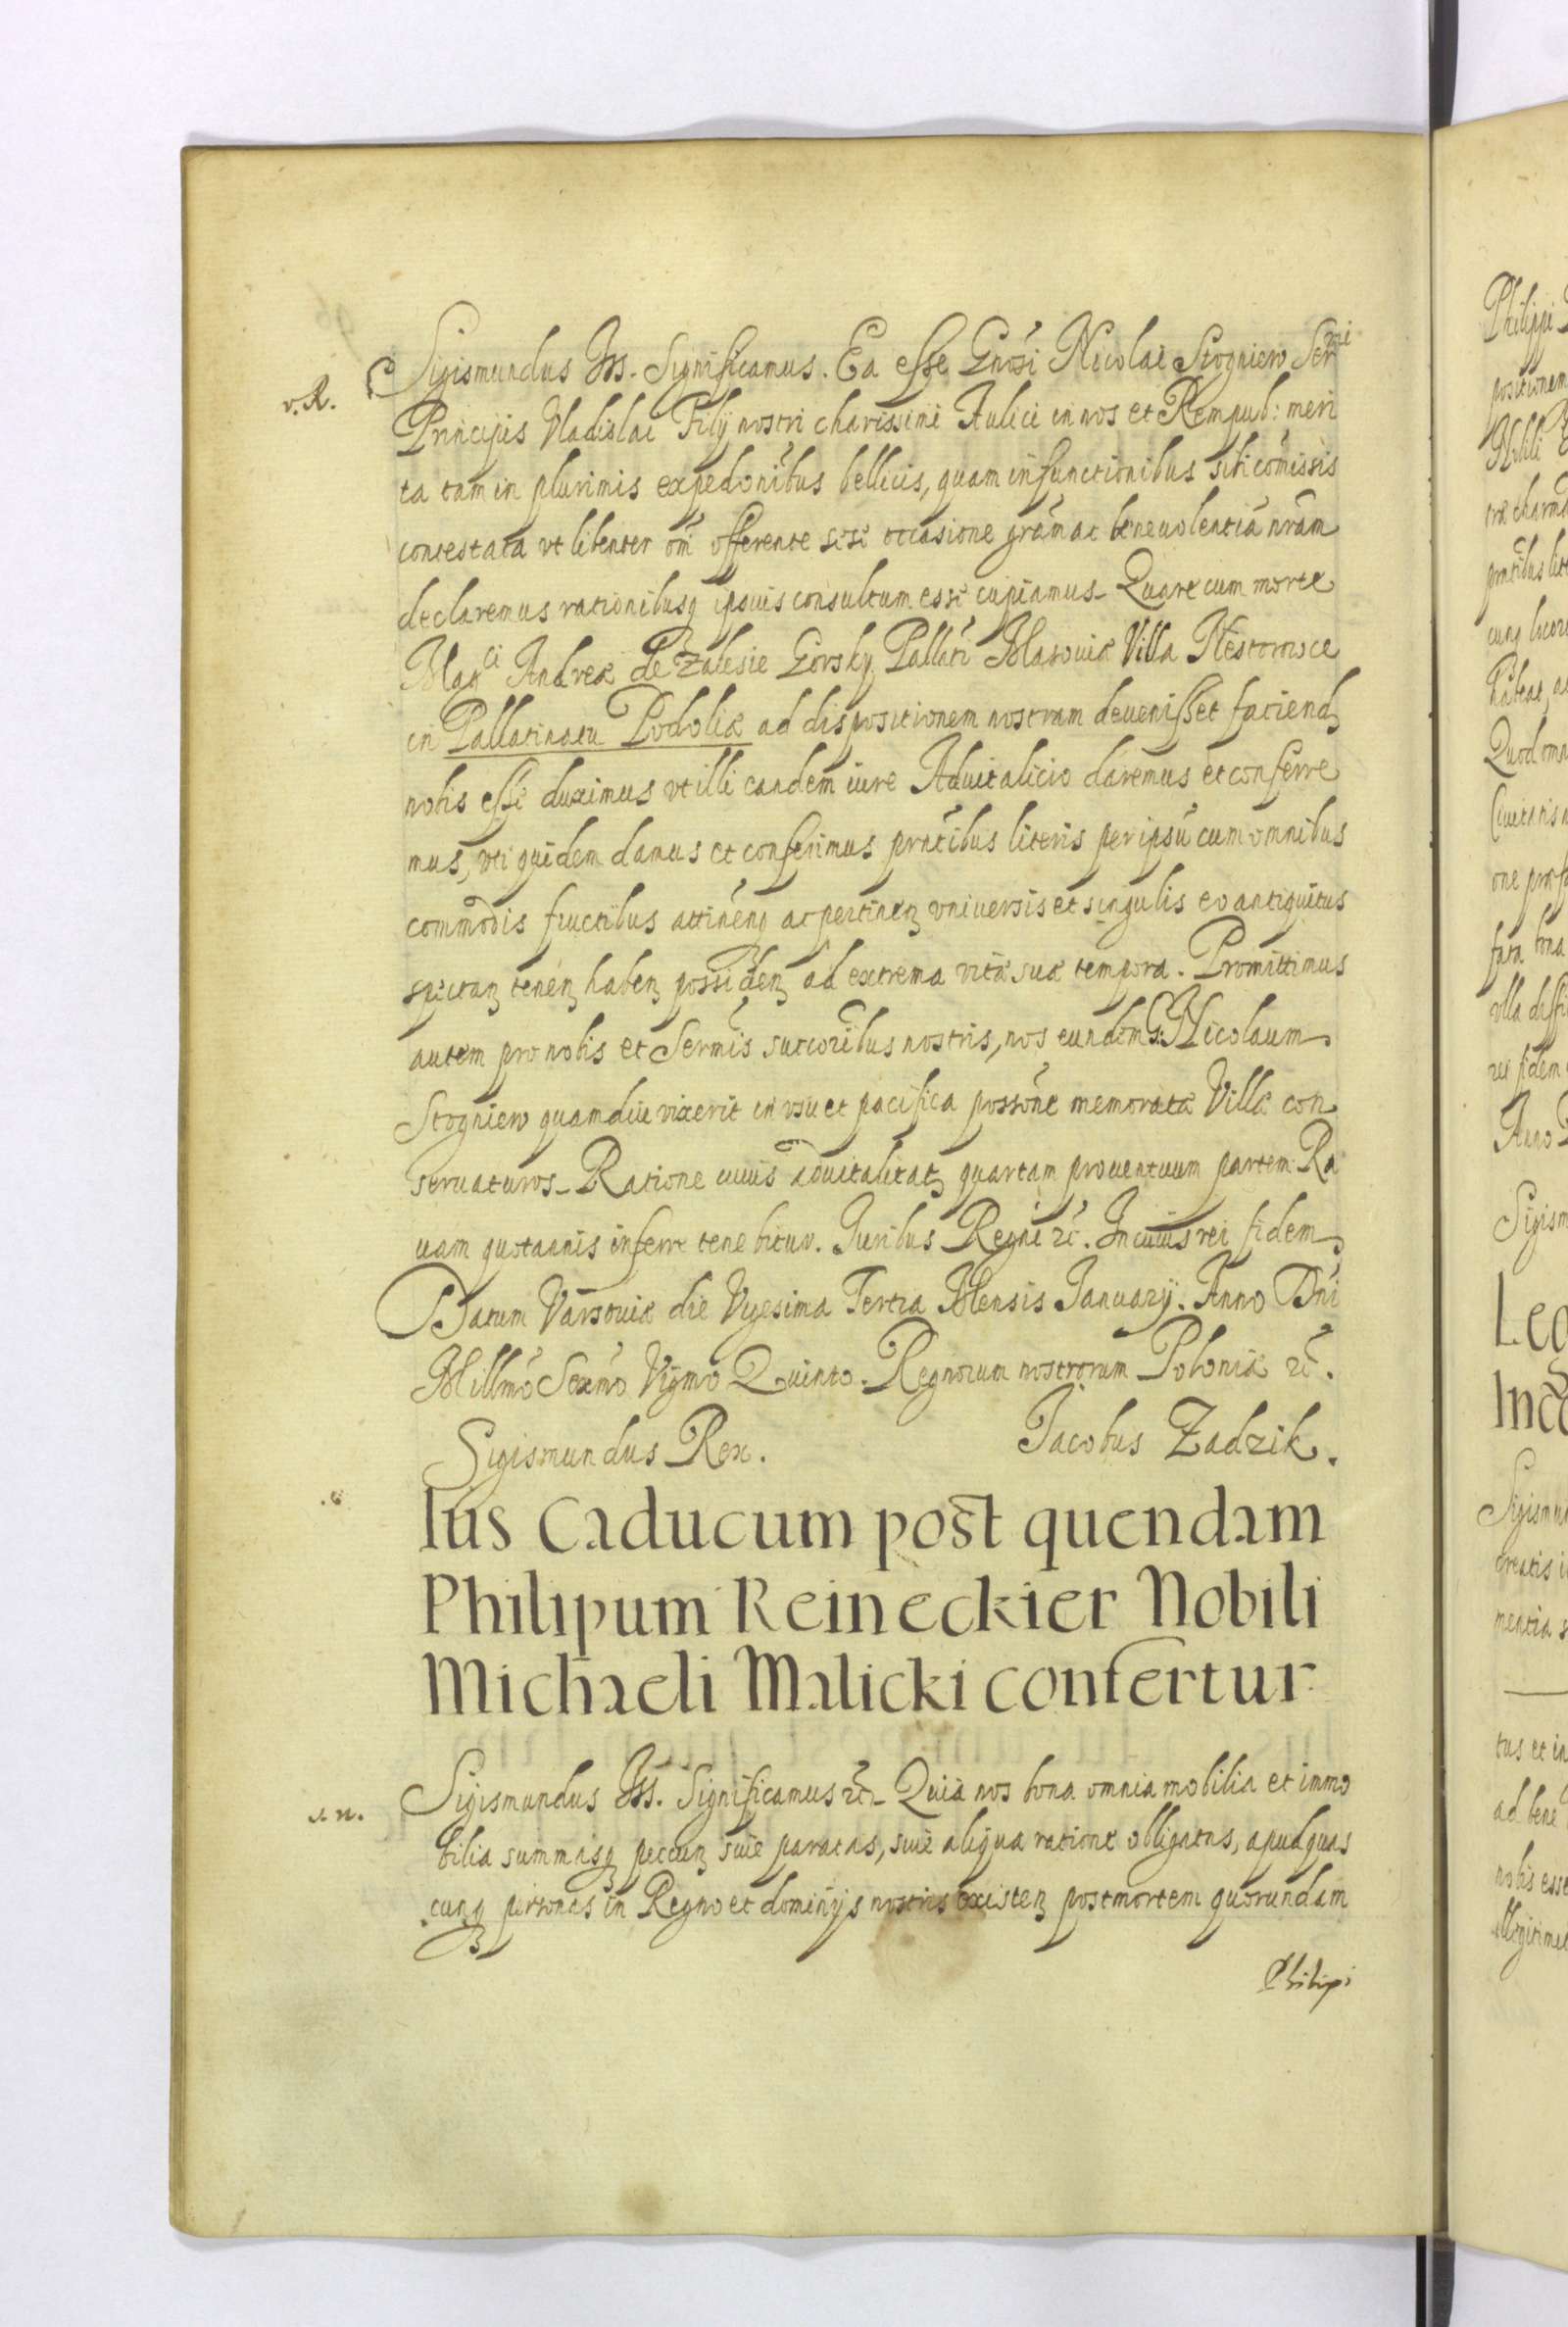 Sigismundus IIIs. Significamus. Ea esse Gnosi Nicolai Stogniew Sermi
v. R.
Principis Vladislai Filij nostri charissimi Aulici in nos et Rempub: meri
ta tam in plurimis expedonibus bellicis, quam in functionibus sibi comissis
contestata vt libenter om offerente sese occasione gram ac beneuolentiã nram
declaremus rationibusq ipsuis consultum esse cupiamus. Quare cum morte
Magci Andreæ de Zalesie Gorsky Pallati Masouiæ Villa Nestorowce
in Pallatinatu Podoliæ ad dispositionem nostram deuenisset faciend
nobis esse duximus vt illi eandem iure Aduitalicio daremus et conferre
mus, vti quidem damus et conferimus prntibus literis per ipsũ cum omnibus
commodis fructibus attinen ac pertinen vniuersis et singulis eo antiquitus
spectan tenen haben possiden ad extrema vitæ suæ tempora. Promittimus
autem pro nobis et Sermis succoribus nostris, nos eundem G. Nicolaum
Stogniew quamdiu vixerit in vsu et pacifica possone memoratæ Villæ con
seruaturos. Ratione cuius aduitalitat quartam prouentuum partem Ra
uam quotannis inferre tenebitur. Iuribus Regni rc. In cuius rei fidem
Datum Varsouiæ die Vigesima Tertia Mensis Ianuarij. Anno Dni
Millmo Sexmo Vigmo Quinto. Regnorum nostrorum Poloniæ rc.
Sigismundus Rex. Jacobus Zadzik.
Ius Caducum post quendam
Philipum Reineckier Nobili
Michaeli Malicki confertur
Sigismundus IIIs. Significamus rc. Quia nos bona omnia mobilia et immo
s. n.
bilia summasq pecun siue paratas, siue aliqua ratione obligatas, apud quas
cunq personas in Regno et dominijs nostris existen post mortem quorundam
Philipi